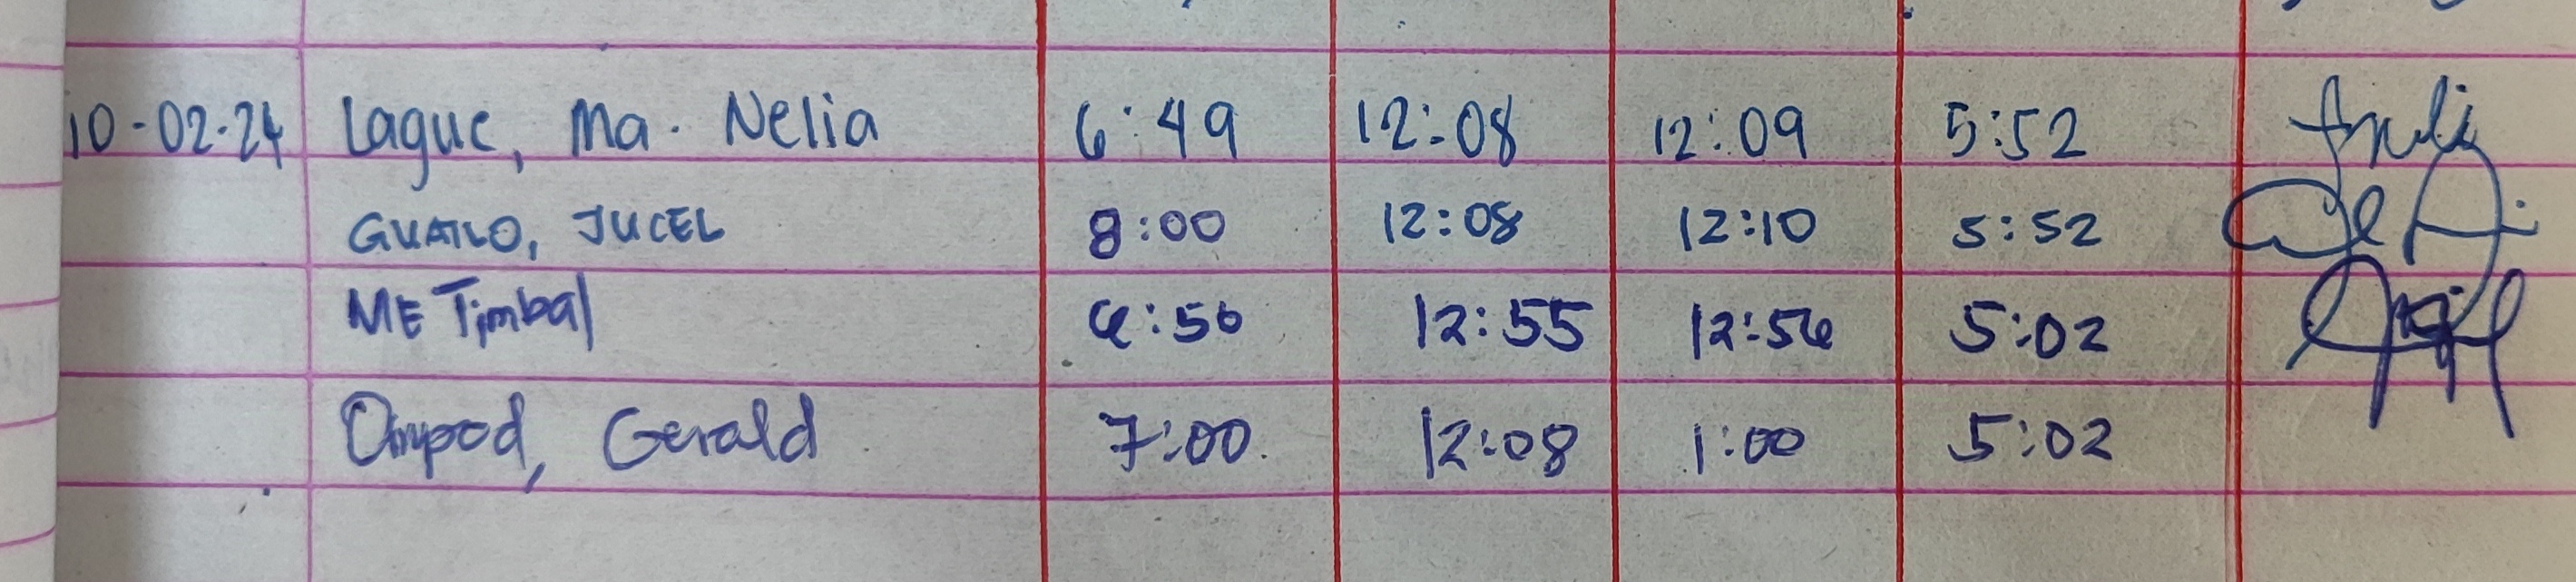 10-02-24 Laguc, Ma. Nelia 6:49 12:08 12:09 5:52
GUATLO, JUCEL 8:00 12:08 12:10 5:52
ME Timbal 6:50 12:55 12:56 5:02
Ompod, Gerald 7:00 12:08 1:00 5:02